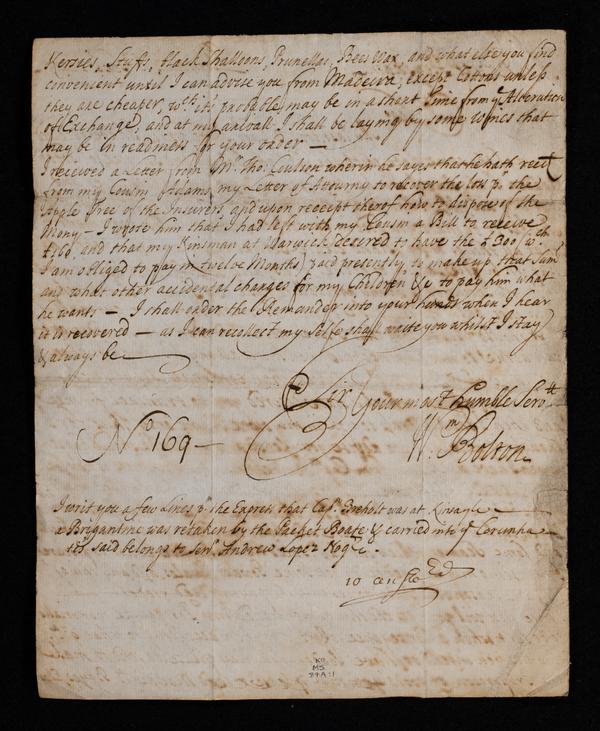 Kersies, Stuffs, black Shalloons, Prunellas, Bees Wax, and what else you find
convenient untill I can advise you from Madeira, except Cottons unless
they are cheaper, wch its probable may be in a short time from ye Alteration
of Exchange, and at my arivall I shall be laying by some wines that
may be in readiness for your order —
I received a Letter from Mr Tho: Coulson wherein he sayes that he hath reced
from my Cousin Adams my Letter of Attourny to recover the loss pr the
Apple Tree of the Insurers, and upon receipt thereof how to dispose of the
Mony — I wrote him that I had left with my Cousin a Bill to receive
£160, and that my Kinsman at Warwick desired to have the £300 wch
I am obliged to pay in twelve Months) paid presently, to make up that Sum
and what other accidental charges for my Children &c to pay him what
he wants — I shall order the Remainder into your hands when I hear
it is recovered — as I can recollect my selfe shall waite you whilst I stay
& always be
Sir Your most humble Servtt
No 169 — Wm Bolton
I writ you a few Lines pr the Express that Cap. was at Kinsayle
a Brigantine was retaken by the Packet Boate & carried into ye Corunha
its said belongs to Senr Andrew Lopez
10 answed
K11
MS